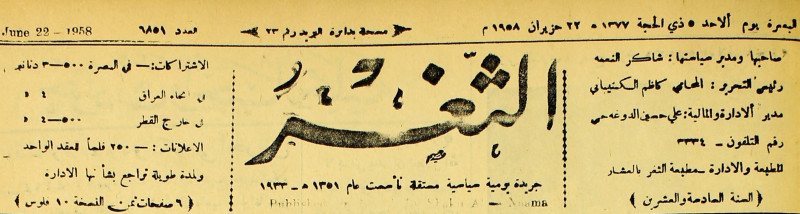 البصرة يوم الاحد ٥ ذي الحجة ١٣٧٧ هـ ٢٢ حزيران ١٩٥٨ م
مسجلة بدائرة البريد رقم ٢٣
العدد ٦٨٥١
June 22 - 1958
صاحبها ومدير سياستها : شاكر النعمه
رئيس التحرير : المحامي كاظم الكتيباني
مدير الادارة والمالية : علي حسين الدوغه جي
رقم التلفون - ٣٣٣٤
المطبعة والادارة - مطبعة الثغر بالعشار
( السنة السادسة والعشرين )
الثغر
جريدة يومية سياسية مستقلة تأسست عام ١٣٥١ هـ - ١٩٣٣
الاشتراكات :- في البصرة ٥٠٠-٣ دنانير
في انحاء العراق ٤ ٥
في خارج القطر ٥٠٠-٤ ٥
الاعلانات :- ٢٥٠ فلساً للعقد الواحد
ولمدة طويلة تراجع بشأنها الادارة
( ٦ صفحات ثمن النسخة ١٠ فلوس )